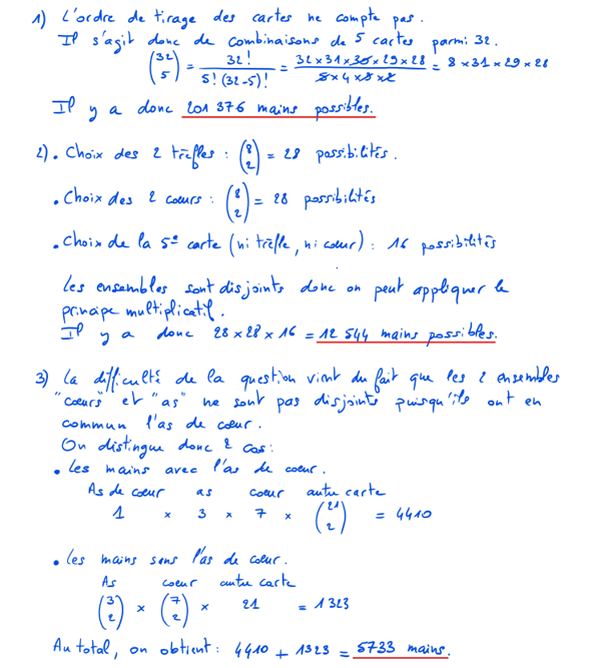 1) L'ordre de tirage des cartes ne compte pas.
Il s'agit donc de combinaisons de 5 cartes parmi 32.
(32 5) = 32! / 5!(32-5)! = 32×31×30×29×28 / 5×4×3×2 = 8×31×29×28
Il y a donc 201 376 mains possibles.
2) • Choix des 2 trèfles : (8 2) = 28 possibilités.
• Choix des 2 cœurs : (8 2) = 28 possibilités
• Choix de la 5e carte (ni trèfle, ni cœur) : 16 possibilités
Les ensembles sont disjoints donc on peut appliquer le
principe multiplicatif.
Il y a donc 28×28×16 = 12 544 mains possibles.
3) La difficulté de la question vient du fait que les 2 ensembles
"cœurs" et "as" ne sont pas disjoints puisqu'ils ont en
commun l'as de cœur.
On distingue donc 2 cas :
• Les mains avec l'as de cœur.
As de cœur as cœur autre carte
1 × 3 × 7 × (21 2) = 4410
• Les mains sans l'as de cœur.
As cœur autre carte
(3 2) × (7 2) × 21 = 1323
Au total, on obtient : 4410 + 1323 = 5733 mains.